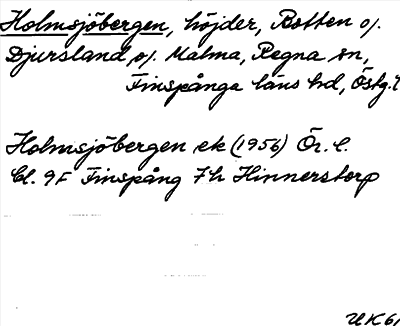 Holmsjöbergen, höjder, Botten o/.
Djursland o/. Malma, Regna sn,
Finspånga läns hd, Östg.l
Holmsjöbergen ek (1956) Ör. l.
Bl. 9F Finspång 7h Hinnerstorp
UK61